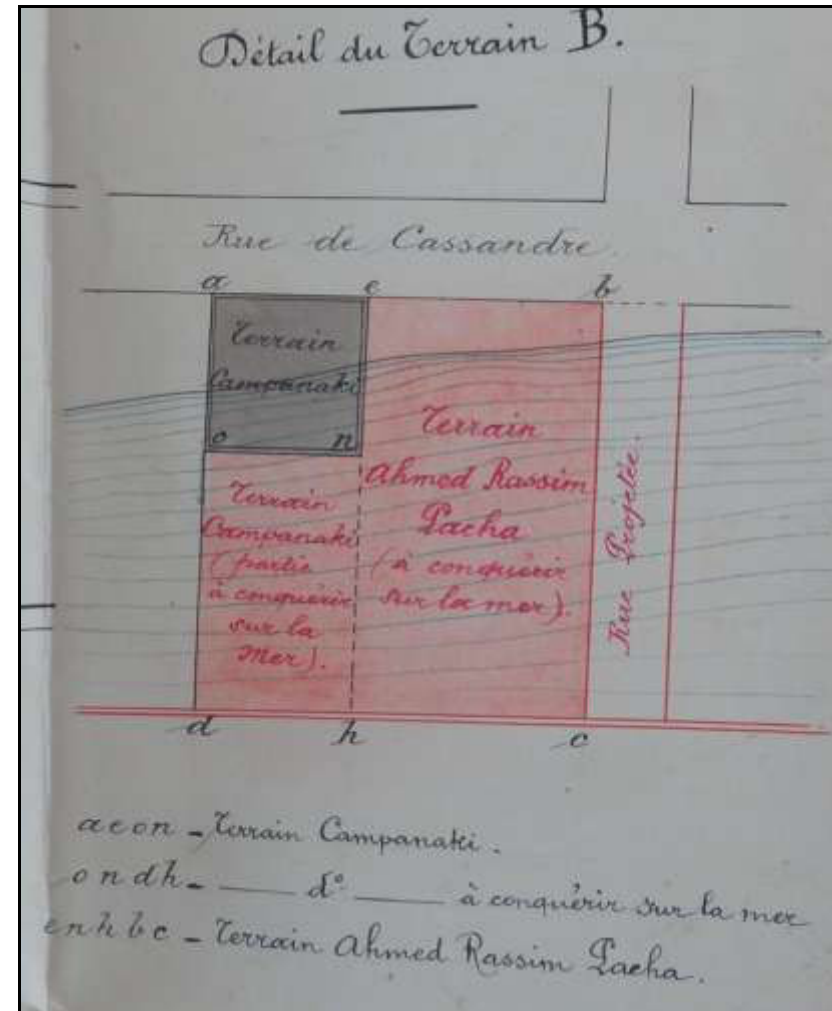 Détail du Terrain B.
Rue de Cassandre.
a e b
Terrain
Campanaki
o n
Terrain
Campanaki
(partie
à conquérir
sur la
mer).
Terrain
Ahmed Rassim
Pacha
(à conquérir
sur la mer).
Rue Projetée.
d h c
a e o n - Terrain Campanaki.
o n d h - d° à conquérir sur la mer
e n h b c - Terrain Ahmed Rassim Pacha.